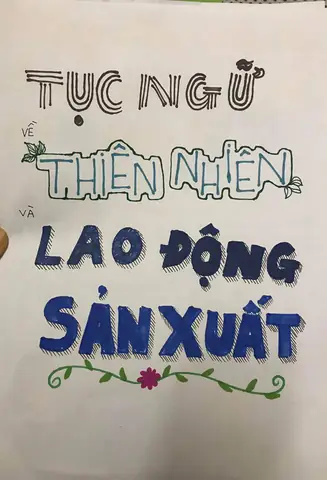 TỤC NGỮ
VỀ
THIÊN NHIÊN
VÀ
LAO ĐỘNG
SẢN XUẤT